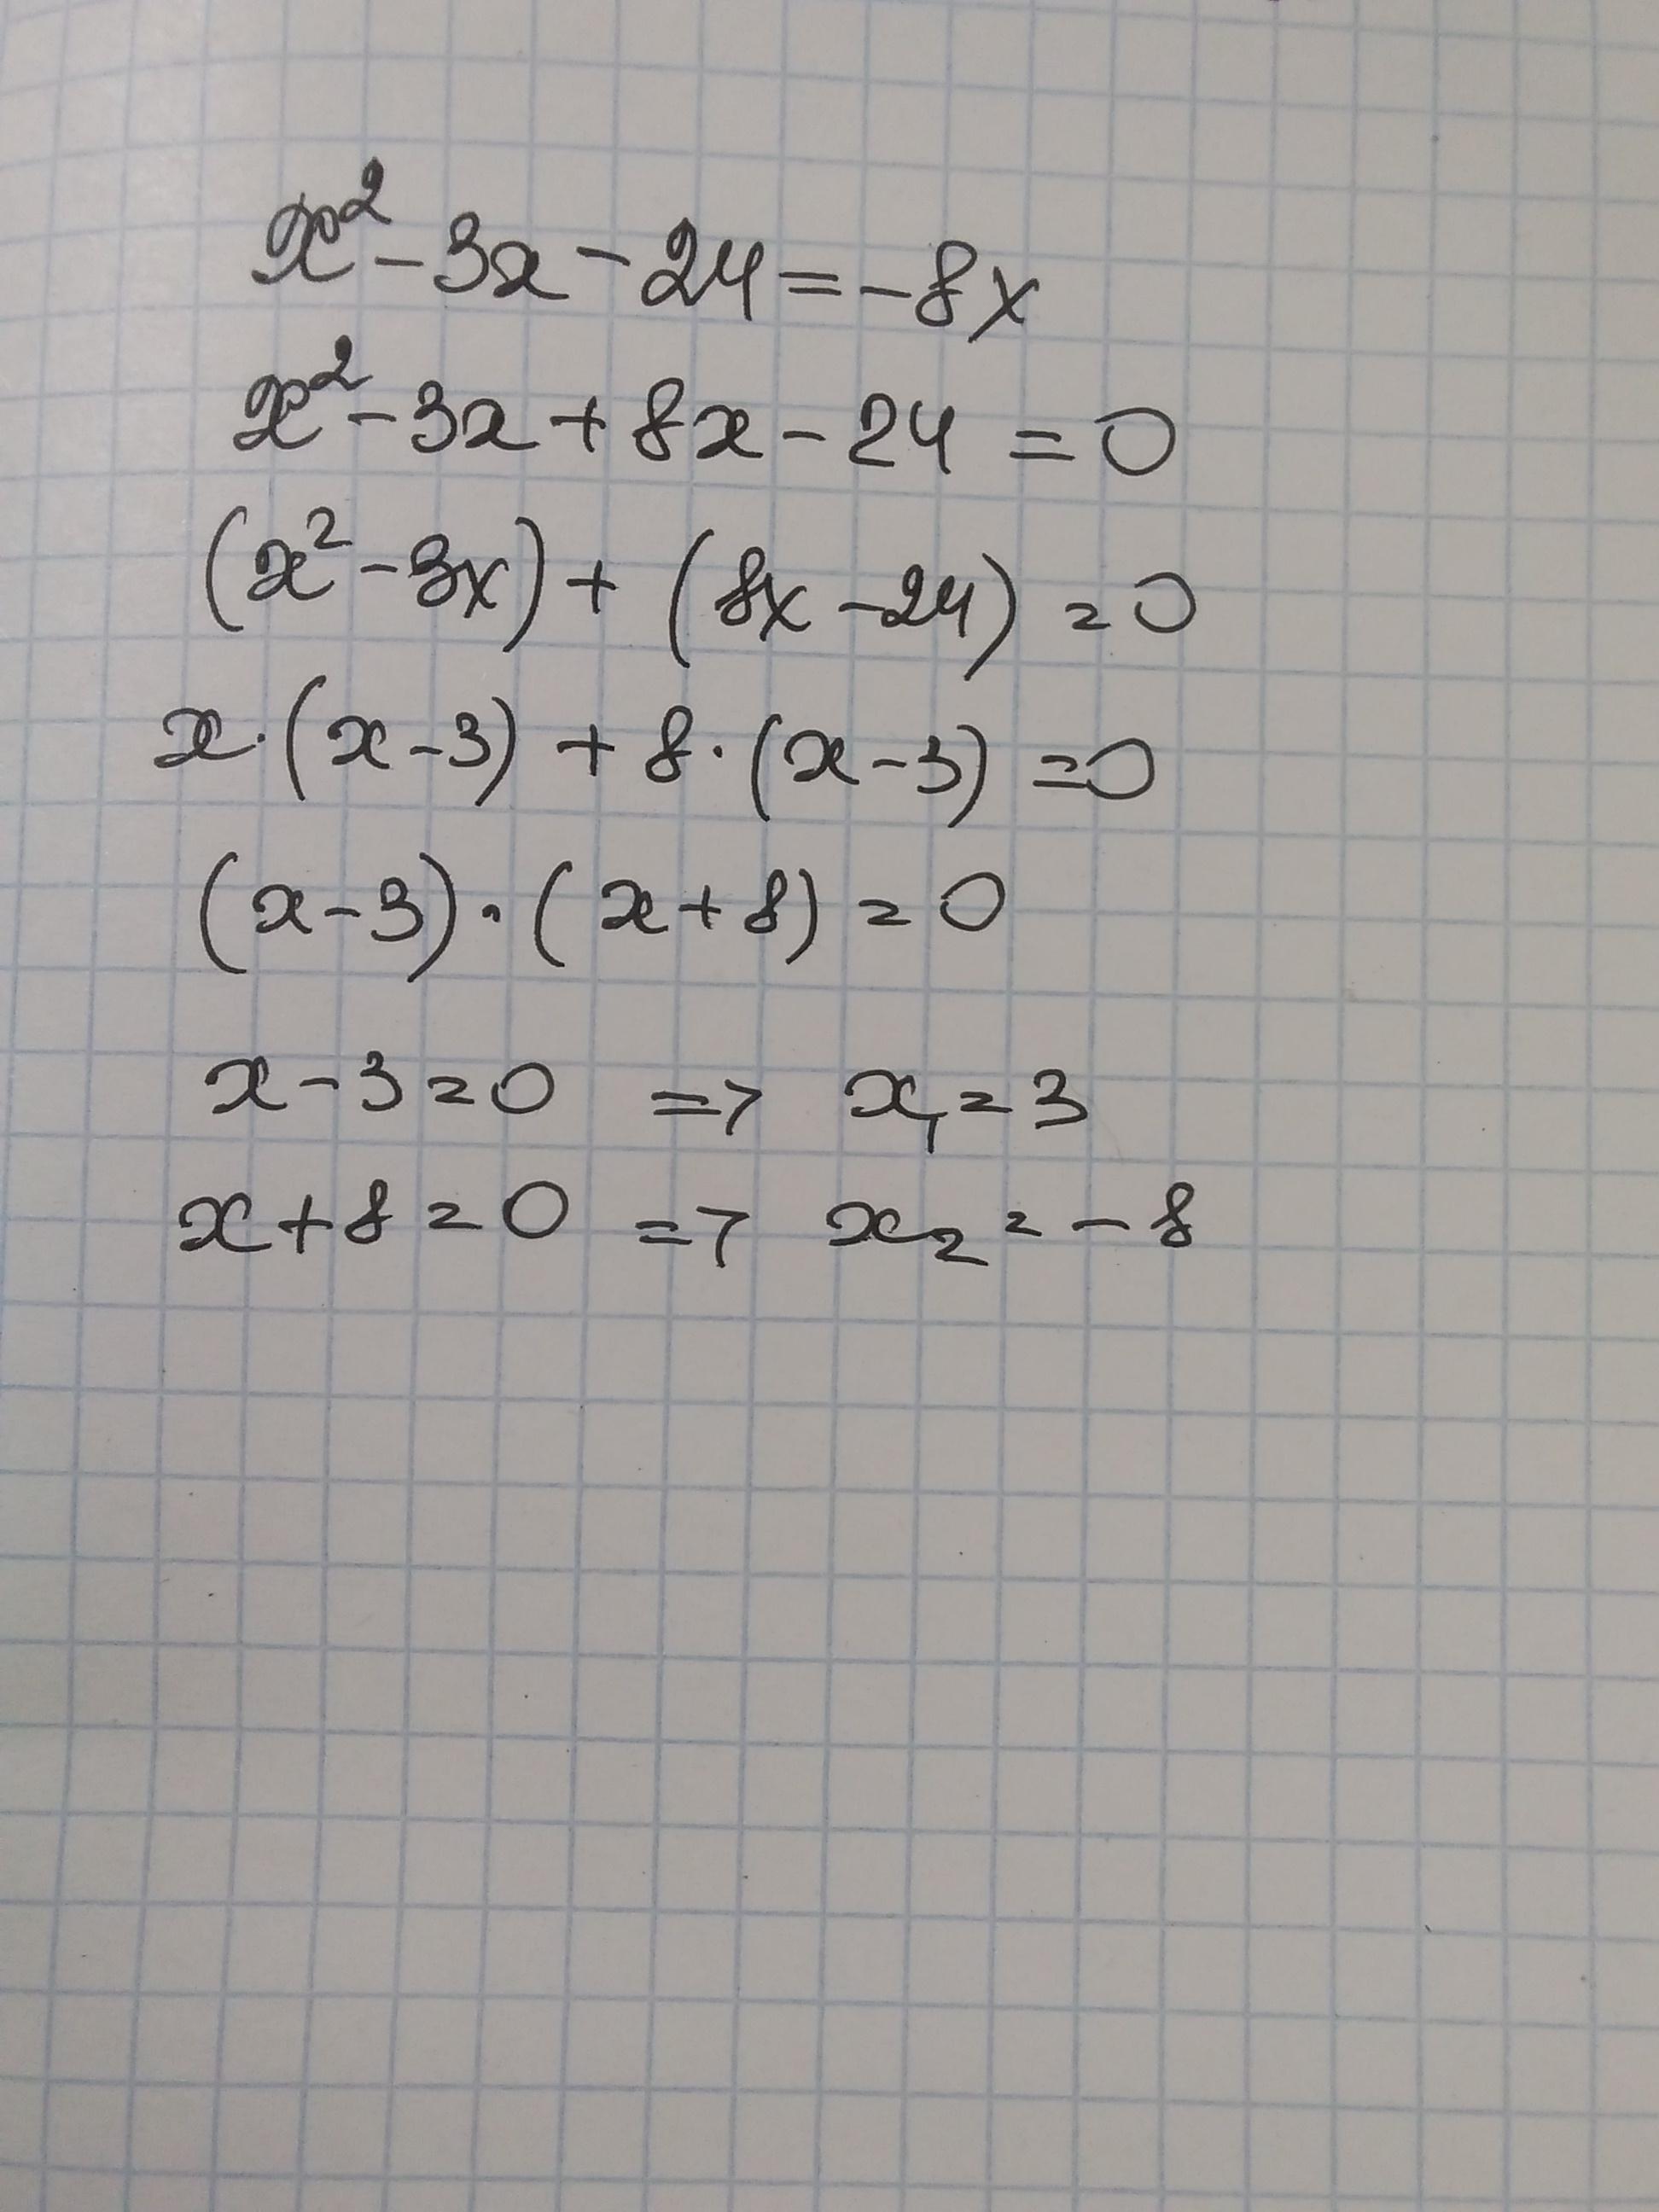 x² - 3x - 24 = -8x
x² - 3x + 8x - 24 = 0
(x² - 3x) + (8x - 24) = 0
x · (x - 3) + 8 · (x - 3) = 0
(x - 3) · (x + 8) = 0
x - 3 = 0 => x₁ = 3
x + 8 = 0 => x₂ = -8